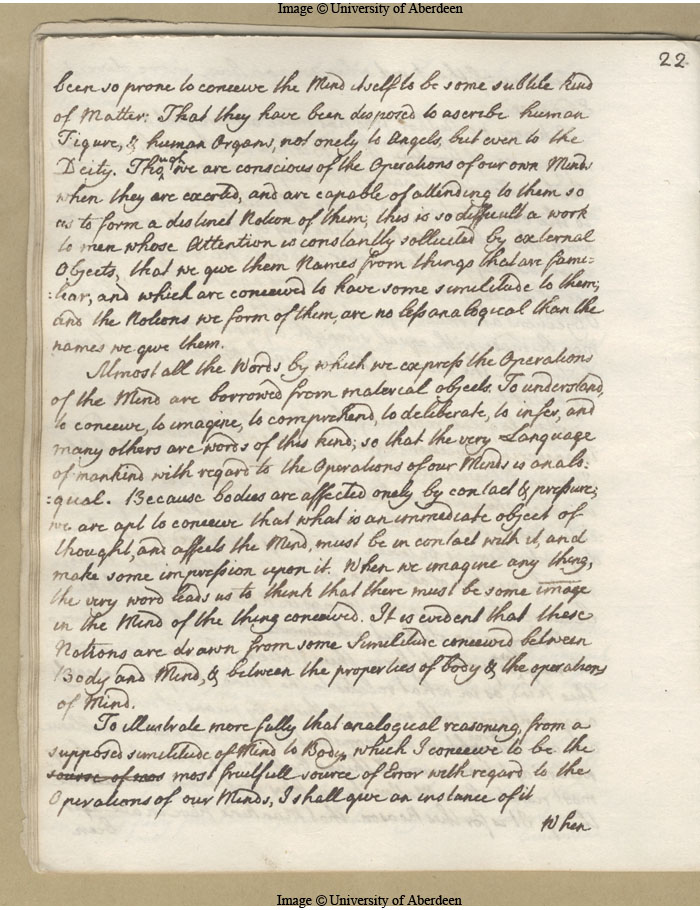 Image © University of Aberdeen
22
been so prone to conceive the Mind itself to be some subtile kind
of Matter: That they have been disposed to ascribe human
Figure, & human Organs, not onely to Angels, but even to the
Deity. Though we are conscious of the Operations of our own Minds
when they are exerted, and are capable of attending to them so
as to form a distinct Notion of them; this is so difficult a work
to men whose Attention is constantly sollicited by external
Objects, that we give them Names from things that are fami=
:liar, and which are conceived to have some similitude to them;
and the Notions we form of them, are no less analogical than the
names we give them.
Almost all the Words by which we express the Operations
of the Mind are borrowed from material objects. To understand,
to conceive, to imagine, to comprehend, to deliberate, to infer, and
many others are words of this kind; so that the very Language
of mankind with regard to the Operations of our Minds is analo:
:gical. Because bodies are affected onely by contact & pressure;
we are apt to conceive that what is an immediate object of
thought, and affects the Mind, must be in contact with it, and
make some impression upon it. When we imagine any thing,
the very word leads us to think that there must be some image
in the Mind of the thing conceived. It is evident that these
Notions are drawn from some Similitude conceived between
Body and Mind, & between the properties of body & the operations
of Mind.
To illustrate more fully that analogical reasoning, from a
supposed similitude of Mind to Body, which I conceive to be the
source of mos most fruitfull source of Error with regard to the
Operations of our Minds, I shall give an instance of it
When
Image © University of Aberdeen